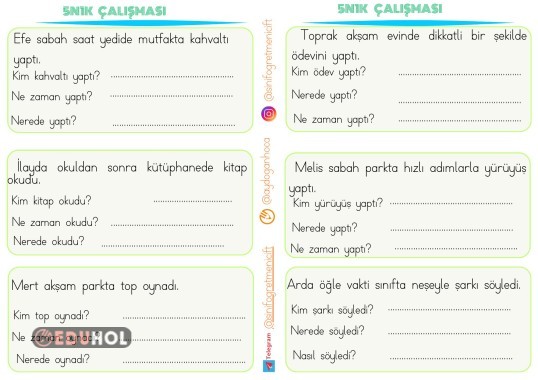 5N1K ÇALIŞMASI
Efe sabah saat yedide mutfakta kahvaltı
yaptı.
Kim kahvaltı yaptı? ........................................
Ne zaman yaptı? ........................................
Nerede yaptı? ........................................
İlayda okuldan sonra kütüphanede kitap
okudu.
Kim kitap okudu? ........................................
Ne zaman okudu? ........................................
Nerede okudu? ........................................
Mert akşam parkta top oynadı.
Kim top oynadı? ........................................
Ne zaman oynadı?
EDUHOL
Nerede oynadı? ........................................
@sinifogretmenicift
@aydoganhoca
Telegram @sinifogretmenicift
5N1K ÇALIŞMASI
Toprak akşam evinde dikkatli bir şekilde
ödevini yaptı.
Kim ödev yaptı? ........................................
Nerede yaptı? ........................................
Ne zaman yaptı? ........................................
Melis sabah parkta hızlı adımlarla yürüyüş
yaptı.
Kim yürüyüş yaptı? ........................................
Nerede yaptı? ........................................
Ne zaman yaptı? ........................................
Arda öğle vakti sınıfta neşeyle şarkı söyledi.
Kim şarkı söyledi? ........................................
Nerede söyledi? ........................................
Nasıl söyledi? ........................................